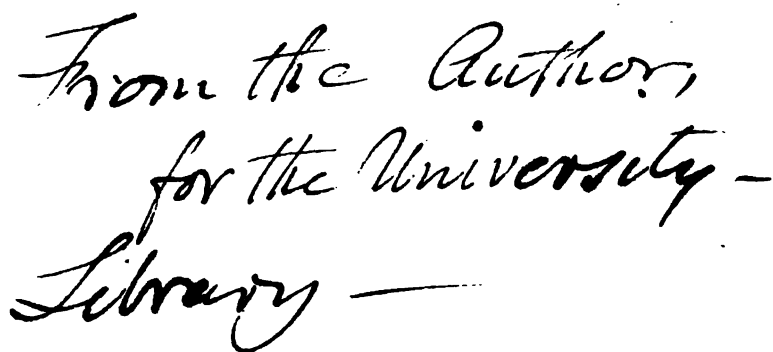 From the Author,
for the University–
Library —